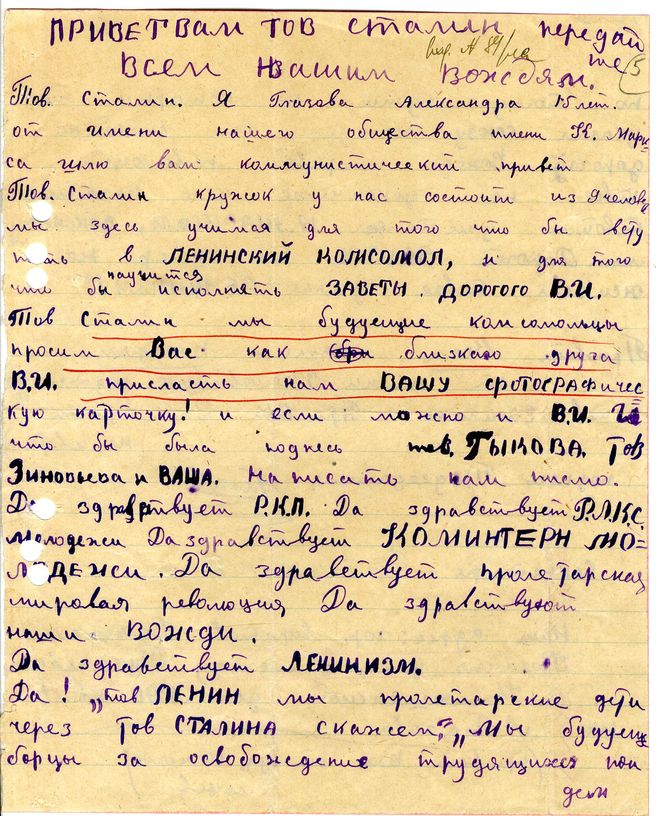 ПРИВЕТ ВАМ ТОВ СТАЛИН передай
те 5
ВСЕМ НАШИМ ВОЖДЯМ.
Тов. Сталин. Я Глазова Александра 15 лет.
от имени нашего общества имени К. Марк
са шлю вам коммунистический привет
Тов. Сталин кружок у нас состоит из 9 человек
мы здесь учимся для того что бы всту
пить в ЛЕНИНСКИЙ КОМСОМОЛ, и для того
научится
что бы исполнять ЗАВЕТЫ ДОРОГОГО В.И.
Тов Сталин мы будущие комсомольцы
просим Вас как близкаго друга
В.И. присласть нам ВАШУ ФОТОГРАФИЧЕС
кую карточку! и если можно и В.И.
что бы была подпесь тов. РЫКОВА. Тов
Зиновьева и ВАША. Написать нам писмо.
Да здравствует Р.К.П. Да здравствует Р.Л.К.С.
молодежи Да здравствует КОМИНТЕРН МО=
ЛОДЕЖИ. Да здравствует пролетарская
мировая революция, Да здравствуют
наши ВОЖДИ.
Да здравствует ЛЕНИНИЗМ.
Да! „тов ЛЕНИН мы пролетарские дети
через тов СТАЛИНА скажем? „Мы будущие
борцы за освобождение трудящихся